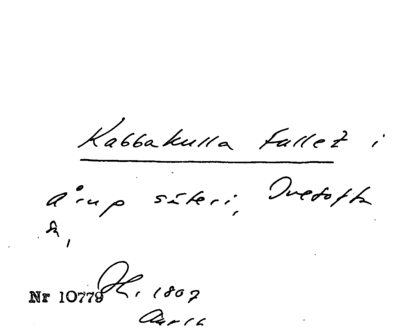 Kabbakulla fallet i
Årup säteri, Ivetofta
sn,
Nr 10779 Hk. 1807
Avrit